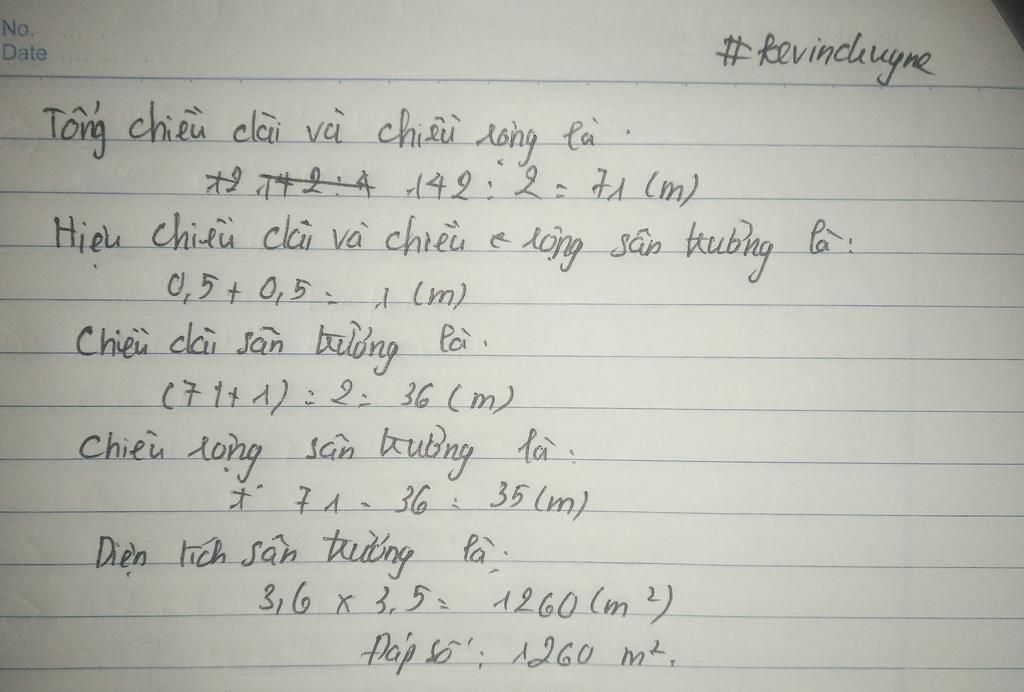 No.
Date
#kevinchuyne
Tổng chiều dài và chiều rộng là.
142 : 2 = 71 (m)
Hiệu chiều dài và chiều rộng sân trường là:
0,5 + 0,5 = 1 (m)
Chiều dài sân trường là.
(71+1) : 2 = 36 (m)
Chiều rộng sân trường là:
71 - 36 = 35 (m)
Diện tích sân trường là:
3,6 x 3,5 = 1260 (m²)
Đáp số: 1260 m².